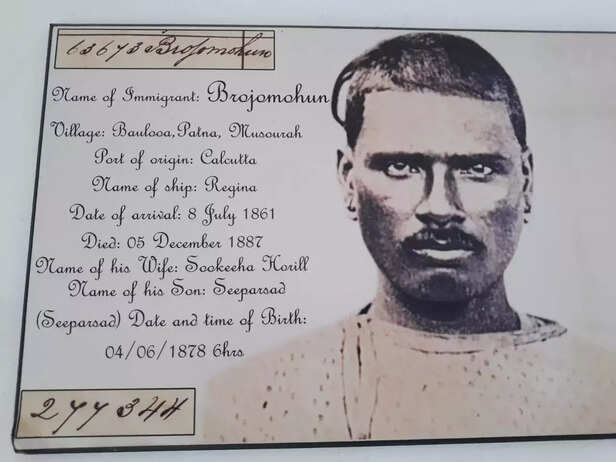 63673 Brojomohun
Name of Immigrant: Brojomohun
Village: Baulooa,Patna, Musourah
Port of origin: Calcutta
Name of ship: Regina
Date of arrival: 8 July 1861
Died: 05 December 1887
Name of his Wife: Sookeeha Horill
Name of his Son: Seeparsad
(Seeparsad) Date and time of Birth:
04/06/1878 6hrs
277344